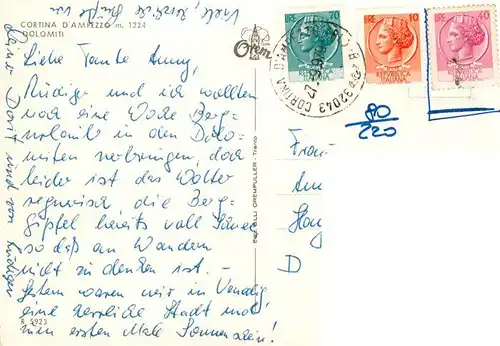 Viele, herzliche Grüße von
CORTINA D'AMPEZZO m. 1224
DOLOMITI
Liebe Tante Anny,
Rüdiger und ich wollten
noch eine Woche Berg-
urlaub in den Dolo-
miten verbringen, doch
leider ist das Wetter
regnerisch die Berg-
gipfel bereits voll Schnee
so daß an Wandern
nicht zu denken ist. –
Gestern waren wir in Venedig
eine herrliche Stadt und
zum ersten Male Sonnenschein!
R 5923
Deine Dorit und von Rüdiger
Orem
FRATELLI OREMPULLER - Trento
LIRE 70
LIRE 10
LIRE 40
REPUBBLICA ITALIANA
REPUBBLICA ITALIANA
32043 CORTINA D'AM
80
220
Frau
Am
D